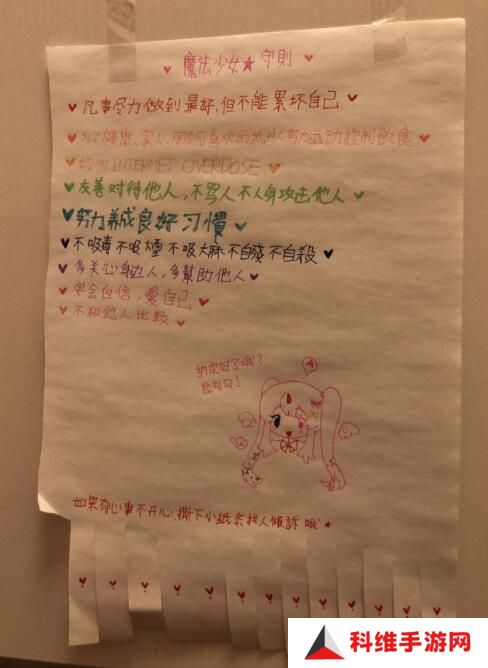 魔法少女★守則
凡事尽力做到最好,但不能累坏自己
为了健康、家人、朋友与喜欢的 努力运动控制飲食
切勿INTERNET OVERDOSE
友善对待他人,不骂人不人身攻击他人
努力养成良好习慣
不吸毒不吸煙不吸大麻不自殘不自殺
多关心身边人,多幫助他人
学会自信,爱自己
不和他人比較
约定好了哦?
拉勾勾!
如果有心事不开心,撕下小紙条找人傾訴哦★
科维手游网